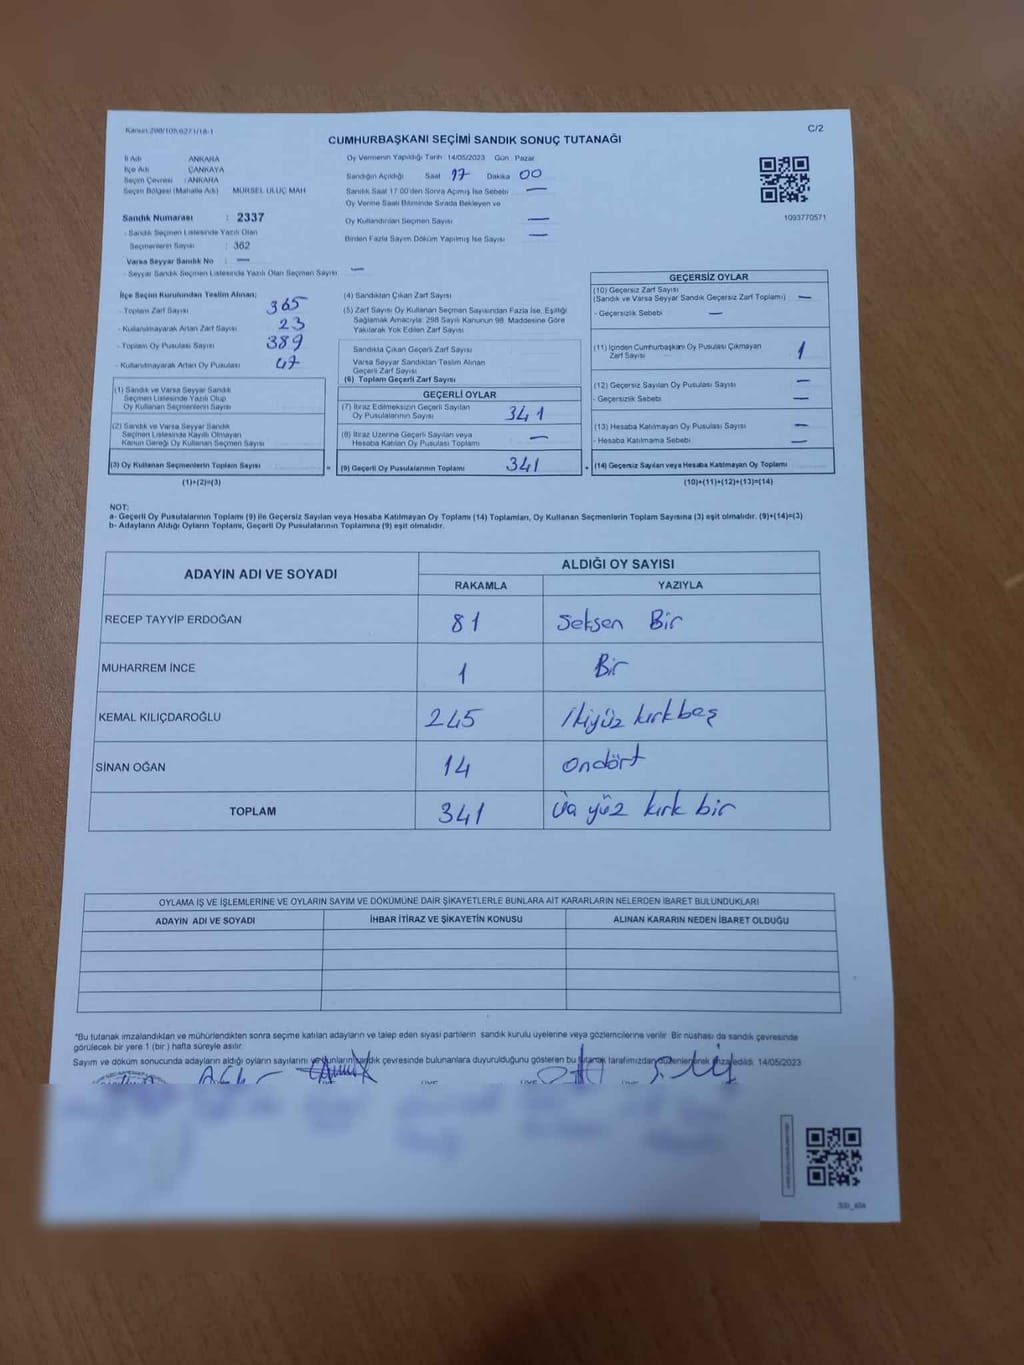 Kanun:298/105,6271/18-1
C/2
CUMHURBAŞKANI SEÇİMİ SANDIK SONUÇ TUTANAĞI
İl Adı ANKARA
İlçe Adı ÇANKAYA
Seçim Çevresi : ANKARA
Seçim Bölgesi (Mahalle Adı) MÜRSEL ULUÇ MAH
Sandık Numarası : 2337
- Sandık Seçmen Listesinde Yazılı Olan
Seçmenlerin Sayısı : 362
Varsa Seyyar Sandık No : —
- Seyyar Sandık Seçmen Listesinde Yazılı Olan Seçmen Sayısı —
Oy Vermenin Yapıldığı Tarih 14/05/2023 Gün Pazar
Sandığın Açıldığı Saat 17 Dakika 00
Sandık Saat 17.00'den Sonra Açılmış İse Sebebi —
Oy Verme Saati Bitiminde Sırada Bekleyen ve
Oy Kullandırılan Seçmen Sayısı —
Birden Fazla Sayım Döküm Yapılmış İse Sayısı —
1093770571
İlçe Seçim Kurulundan Teslim Alınan;
- Toplam Zarf Sayısı 365
- Kullanılmayarak Artan Zarf Sayısı 23
- Toplam Oy Pusulası Sayısı 389
- Kullanılmayarak Artan Oy Pusulası 47
(1) Sandık ve Varsa Seyyar Sandık
Seçmen Listesinde Yazılı Olup
Oy Kullanan Seçmenlerin Sayısı
(2) Sandık ve Varsa Seyyar Sandık
Seçmen Listesinde Kayıtlı Olmayan
Kanun Gereği Oy Kullanan Seçmen Sayısı
(3) Oy Kullanan Seçmenlerin Toplam Sayısı =
(1)+(2)=(3)
(4) Sandıktan Çıkan Zarf Sayısı
(5) Zarf Sayısı Oy Kullanan Seçmen Sayısından Fazla İse, Eşitliği
Sağlamak Amacıyla: 298 Sayılı Kanunun 98. Maddesine Göre
Yakılarak Yok Edilen Zarf Sayısı
Sandıkta Çıkan Geçerli Zarf Sayısı
Varsa Seyyar Sandıktan Teslim Alınan
Geçerli Zarf Sayısı
(6) Toplam Geçerli Zarf Sayısı
GEÇERLİ OYLAR
(7) İtiraz Edilmeksizin Geçerli Sayılan
Oy Pusulalarının Sayısı 341
(8) İtiraz Üzerine Geçerli Sayılan veya
Hesaba Katılan Oy Pusulası Toplamı —
(9) Geçerli Oy Pusulalarının Toplamı 341 +
GEÇERSİZ OYLAR
(10) Geçersiz Zarf Sayısı
(Sandık ve Varsa Seyyar Sandık Geçersiz Zarf Toplamı) —
- Geçersizlik Sebebi —
(11) İçinden Cumhurbaşkanı Oy Pusulası Çıkmayan
Zarf Sayısı 1
(12) Geçersiz Sayılan Oy Pusulası Sayısı —
- Geçersizlik Sebebi —
(13) Hesaba Katılmayan Oy Pusulası Sayısı —
- Hesaba Katılmama Sebebi —
(14) Geçersiz Sayılan veya Hesaba Katılmayan Oy Toplamı
(10)+(11)+(12)+(13)=(14)
NOT:
a- Geçerli Oy Pusulalarının Toplamı (9) ile Geçersiz Sayılan veya Hesaba Katılmayan Oy Toplamı (14) Toplamları, Oy Kullanan Seçmenlerin Toplam Sayısına (3) eşit olmalıdır. (9)+(14)=(3)
b- Adayların Aldığı Oyların Toplamı, Geçerli Oy Pusulalarının Toplamına (9) eşit olmalıdır.
ADAYIN ADI VE SOYADI
ALDIĞI OY SAYISI
RAKAMLA YAZIYLA
RECEP TAYYİP ERDOĞAN 81 Seksen Bir
MUHARREM İNCE 1 Bir
KEMAL KILIÇDAROĞLU 245 İkiyüz kırkbeş
SİNAN OĞAN 14 Ondört
TOPLAM 341 yüz kırk bir
OYLAMA İŞ VE İŞLEMLERİNE VE OYLARIN SAYIM VE DÖKÜMÜNE DAİR ŞİKAYETLERLE BUNLARA AİT KARARLARIN NELERDEN İBARET BULUNDUKLARI
ADAYIN ADI VE SOYADI İHBAR İTİRAZ VE ŞİKAYETİN KONUSU ALINAN KARARIN NEDEN İBARET OLDUĞU
*Bu tutanak imzalandıktan ve mühürlendikten sonra seçime katılan adayların ve talep eden siyasi partilerin sandık kurulu üyelerine veya gözlemcilerine verilir. Bir nüshası da sandık çevresinde
görülecek bir yere 1 (bir) hafta süreyle asılır.
Sayım ve döküm sonucunda adayların aldığı oyların sayılarını ve bunların sandık çevresinde bulunanlara duyurulduğunu gösteren bu tutanak tarafımızdan düzenlenerek imza edildi. 14/05/2023